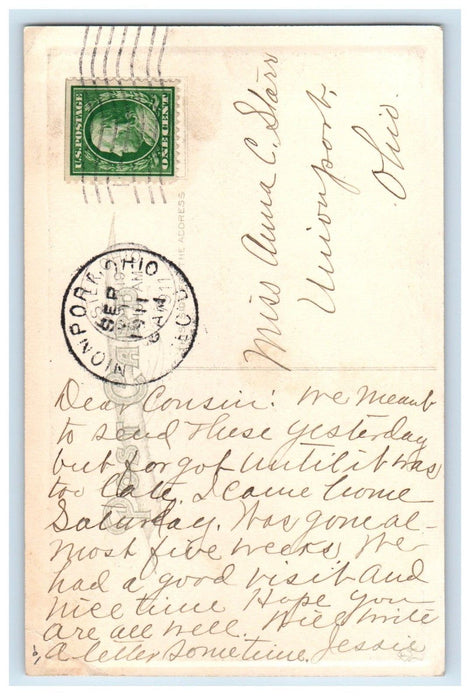 U.S. POSTAGE
ONE CENT
Miss Anna C. Starr
Unionport,
Ohio.
THE ADDRESS
UNIONPORT, OHIO
SEP
1911
6 AM
REC'D
POST CARD
Dear Cousin: We meant
to send these yesterday
but forgot until it was
too late. I came home
Saturday. Was gone al-
most five weeks. We
had a good visit and
nice time Hope you
are all well. Will write
a letter sometime. Jessie